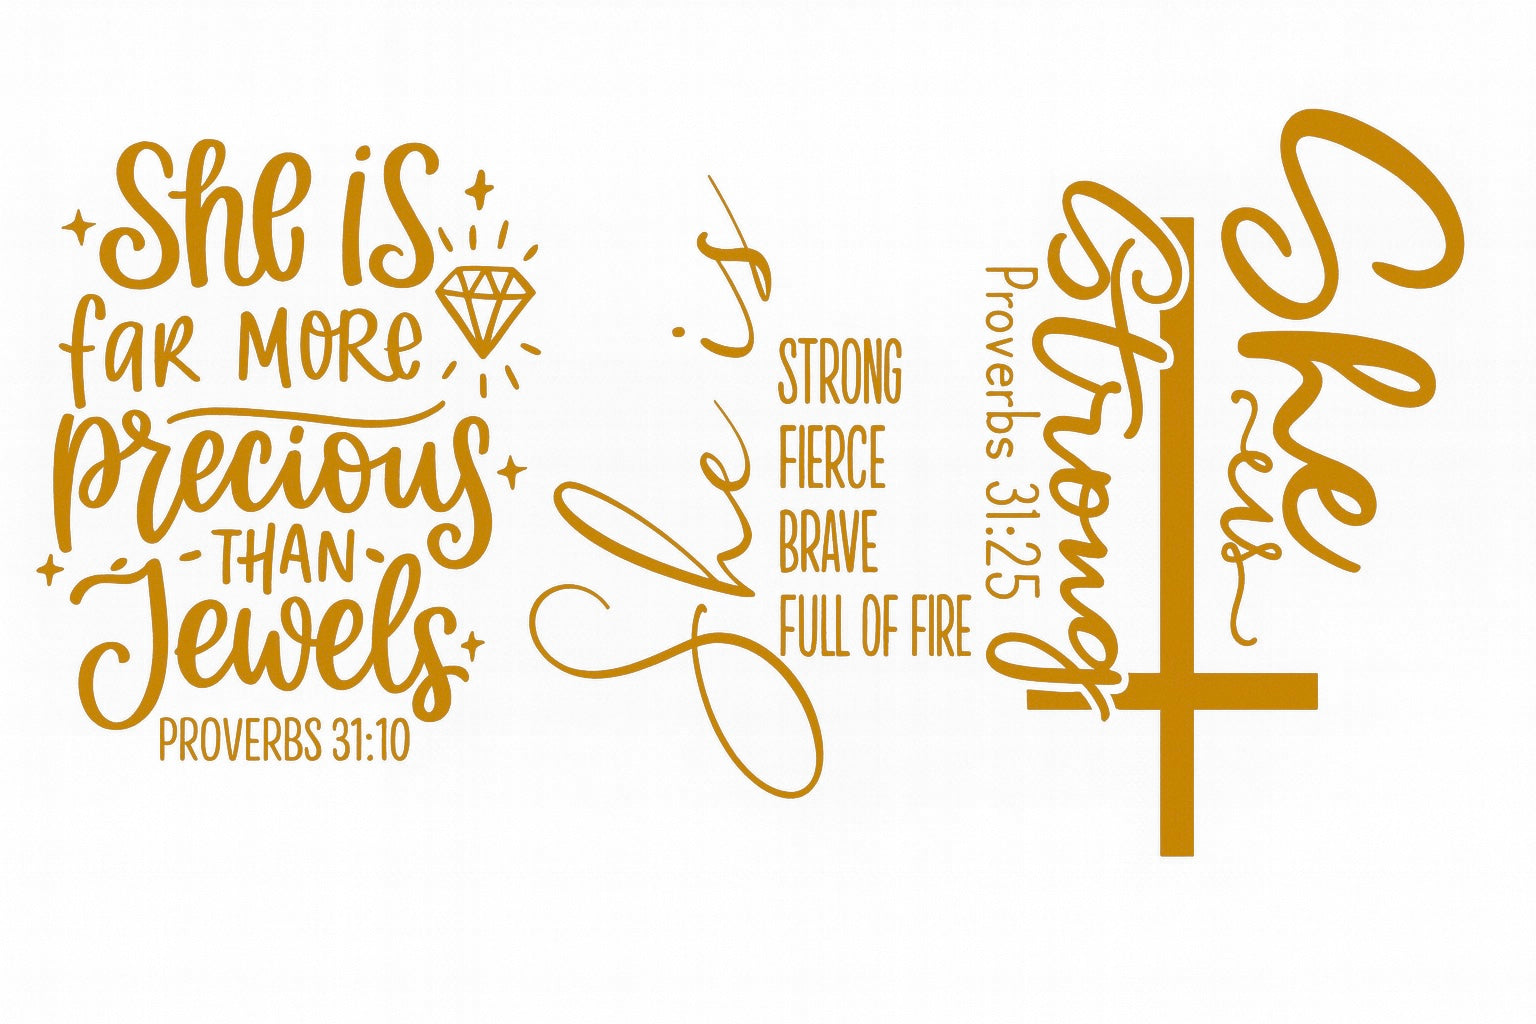 She is
far MORE
precious
THAN
Jewels
PROVERBS 31:10
She is
STRONG
FIERCE
BRAVE
FULL OF FIRE
She
is
Strong
Proverbs 31:25